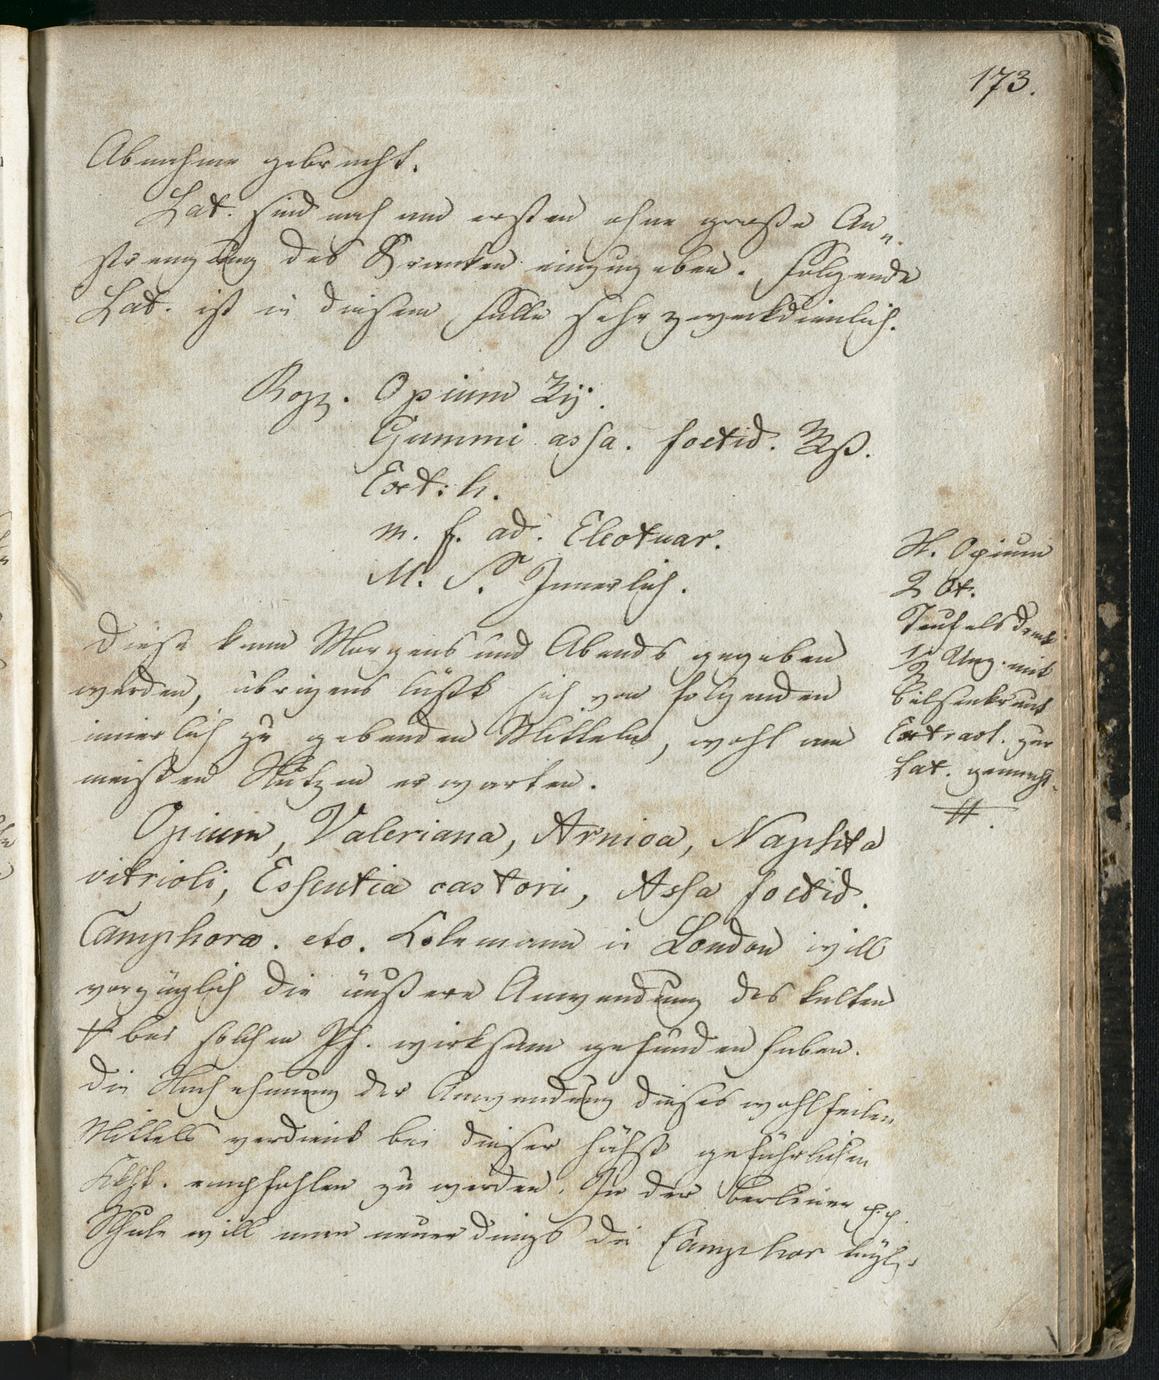 173.
Abnahme gebracht.
Lat. sind noch am ersten ohne große An„
strengung des Kranken einzugeben. Folgende
Lat. ist in diesem Falle sehr zweckdienlich.
Rpz. Opium ʒij.
Gummi assa. foetid. ℥ß.
Ext: h.
m. f. ad. Electuar.
M. S. Innerlich.
Diese kann Morgens und Abends gegeben
werden, übrigens läßt sich von folgenden
innerlich zu gebenden Mitteln, wohl am
meisten Nutzen erwarten.
Opium, Valeriana, Arnica, Naphta
vitrioli, Essentia castorii, Assa foetid.
Camphora. etc. Kolemann in London will
vorzüglich die äußere Anwendung des kalten
bei solchen Pf. wirksam gefunden haben.
Die Nachahmung der Anwendung dieses wohlfeilen
Mittels verdient bei dieser höchst gefährlichen
Kkht. empfohlen zu werden. In der Berliner
Schule will man neuerdings die Camphor
N. Opium
2 Qt.
Teufelsdreck
1/2 Unz. mit
Bilsenkraut
Extract. zur
Lat. gemacht.
#.